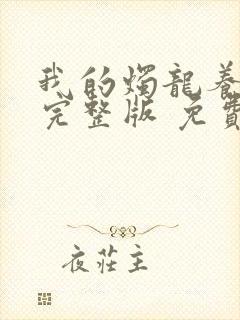 我的燭龍養
完整版 免費
夜莊主